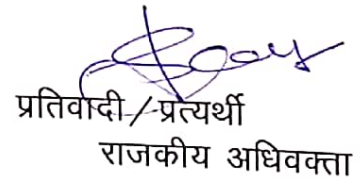 प्रतिवादी/प्रत्यर्थी
राजकीय अधिवक्ता